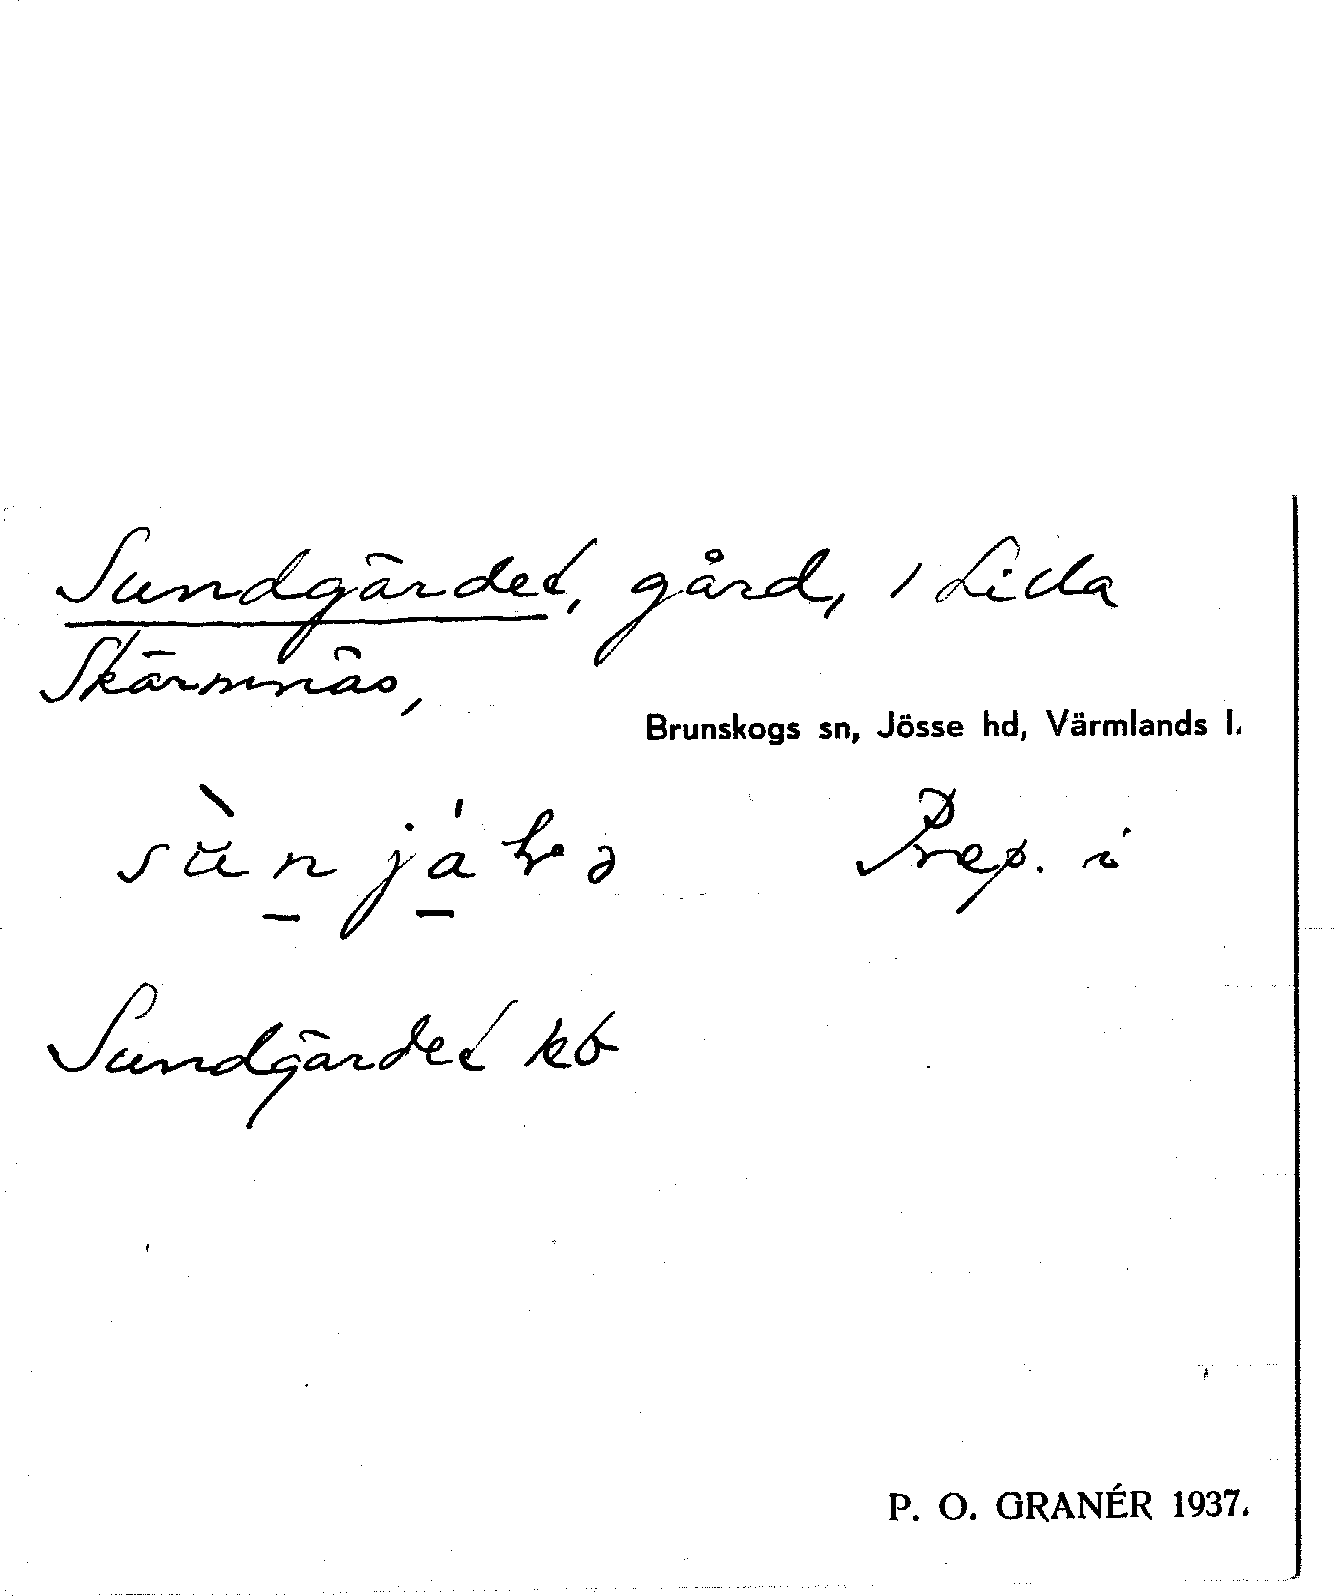 Sundgärdet, gård, i Lida
Skärmnäs,
Brunskogs sn, Jösse hd, Värmlands l.
Prep. i
Sundgärdet kb
P. O. GRANÉR 1937.